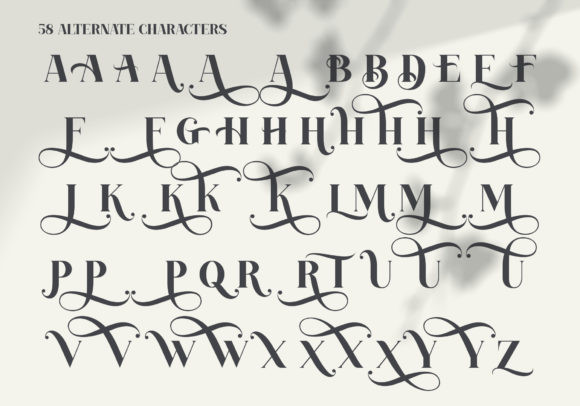 58 ALTERNATE CHARACTERS
A A A A A A B B D E E F
F F G H H H H H H H
J K K K K L M M M
P P P Q R R T U U U
V V W W X X X X Y Y Z